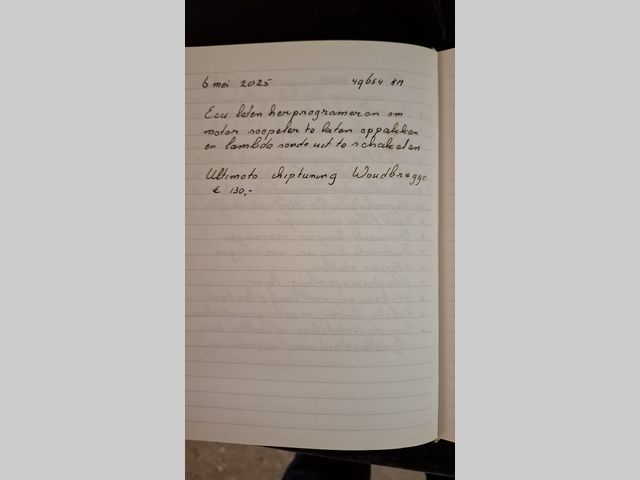 6 mei 2025 49654 KM
Ecu laten herprogrameren om
motor soepeler te laten oppakken
en lambda sonde uit te schakelen
Ultimoto chiptuning Woudbrugge
€ 130,-